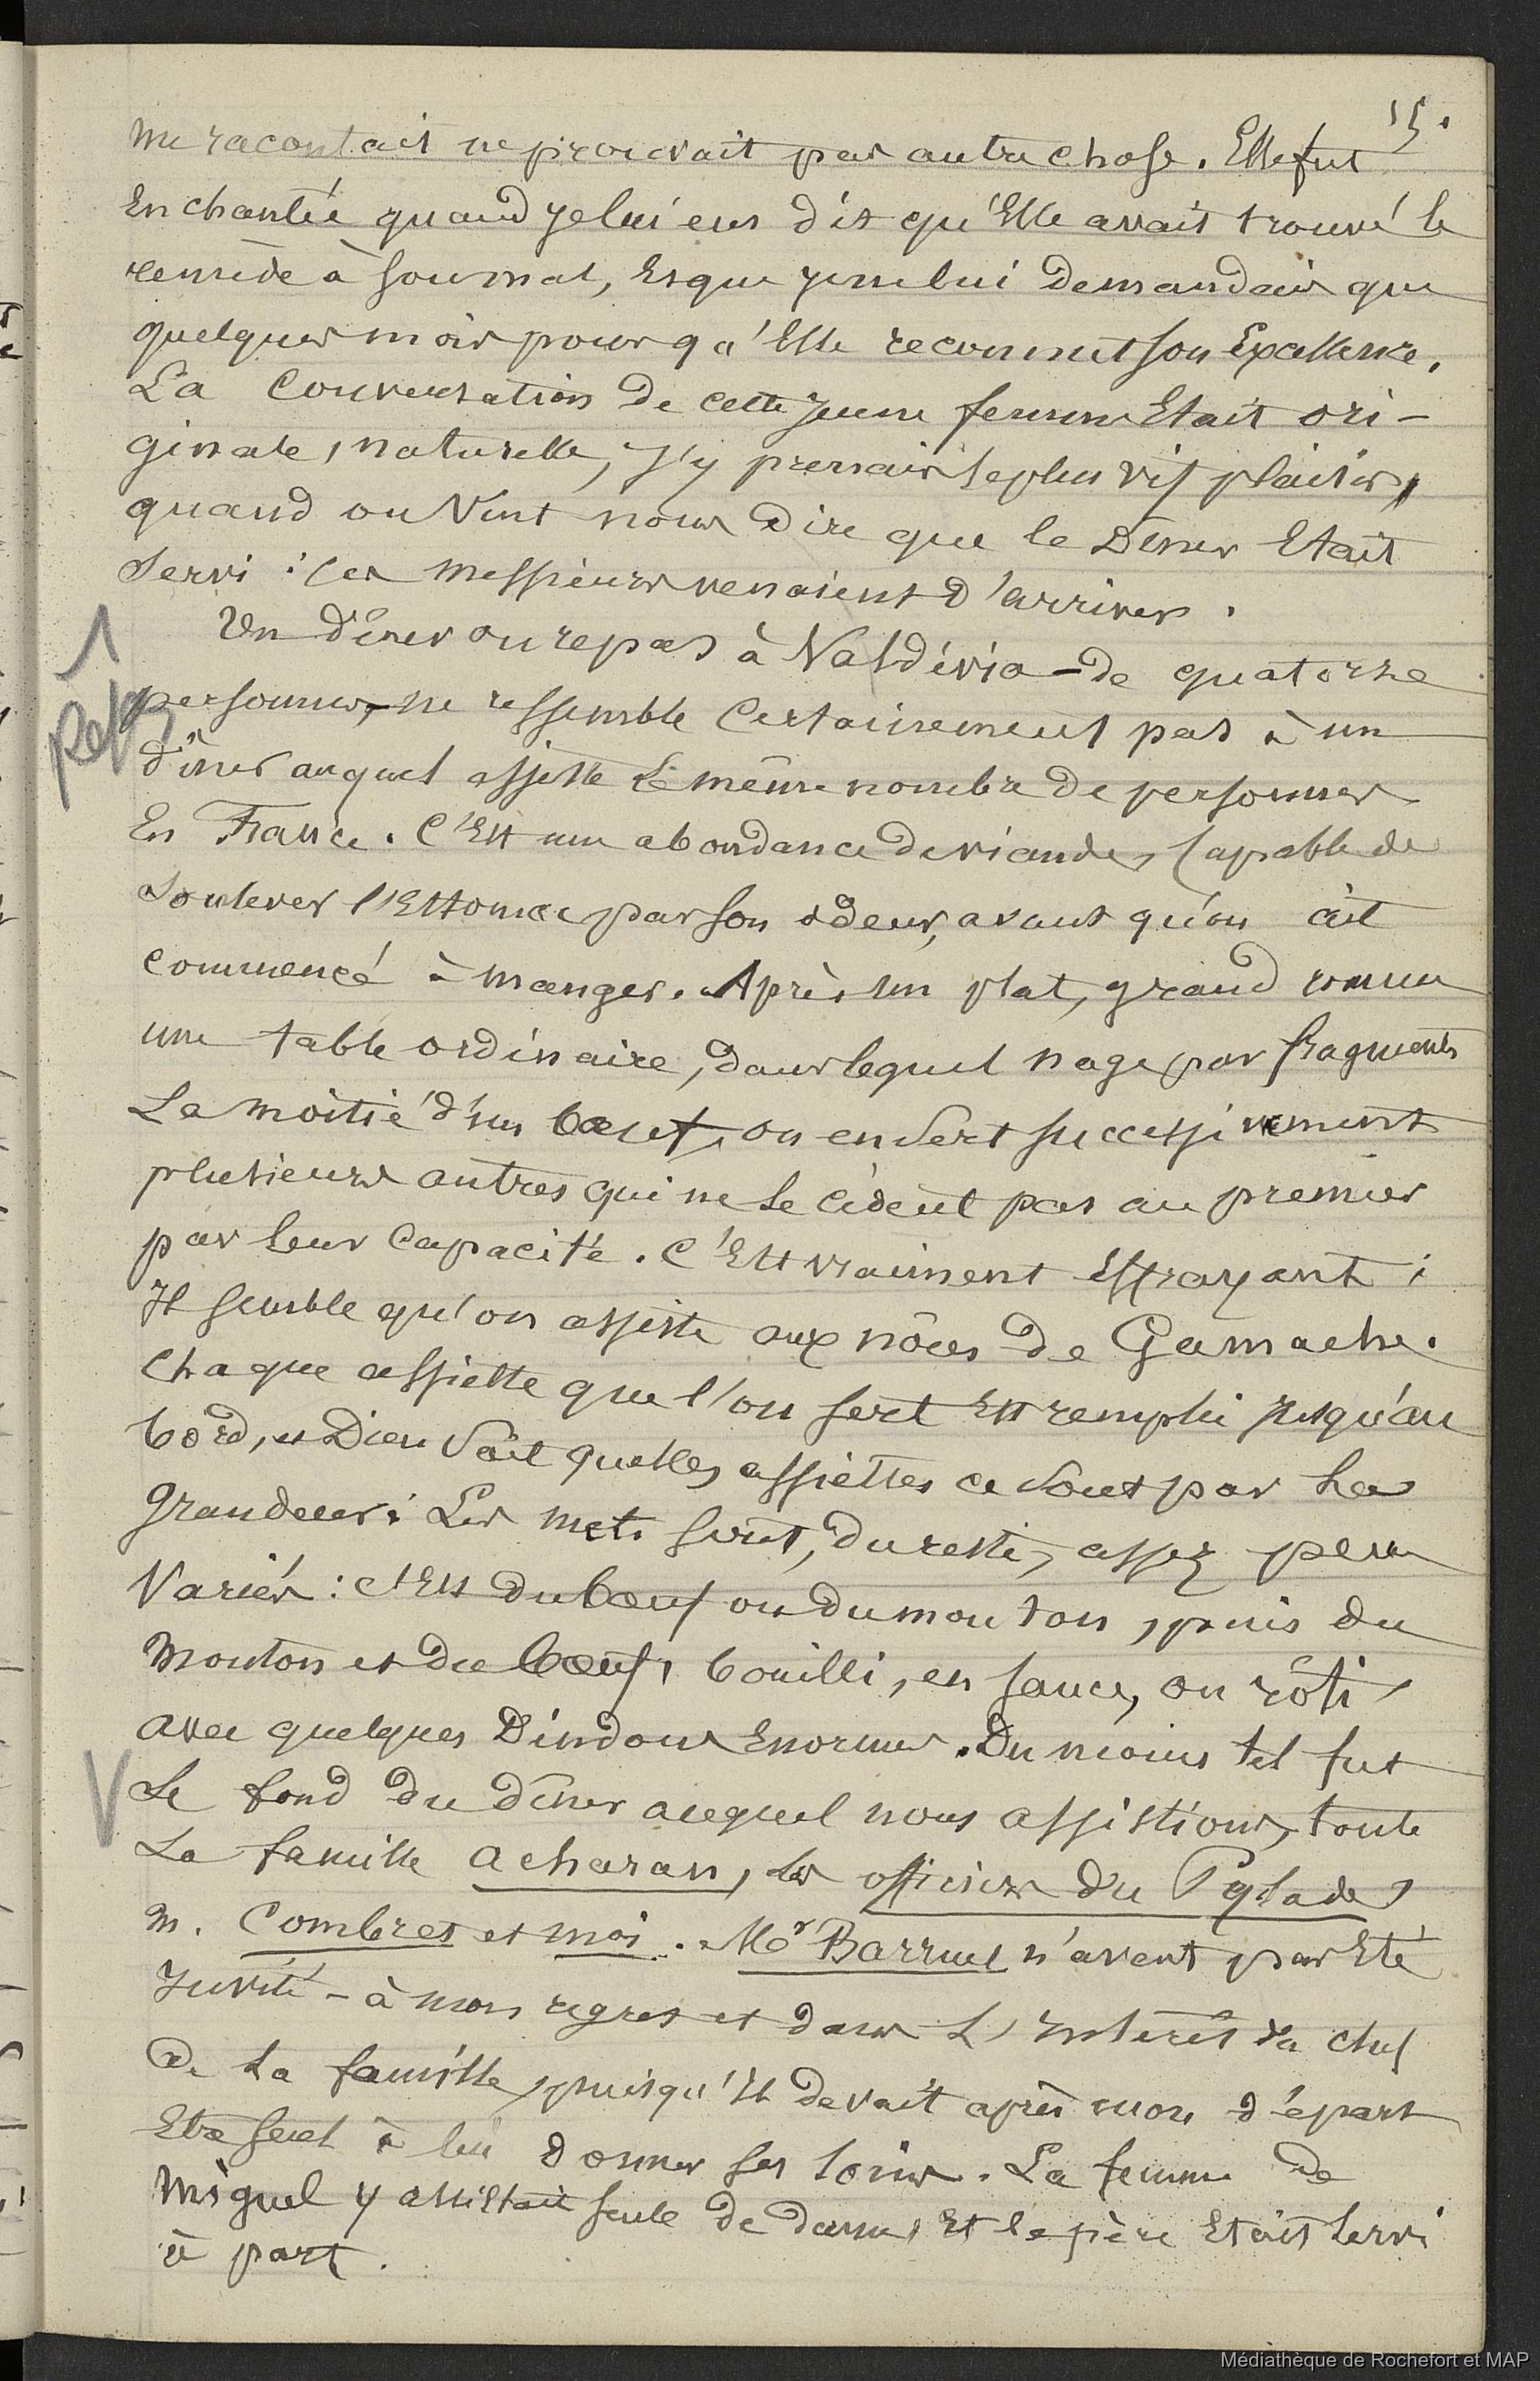 15.
me racontait ne prouvait pas autre chose. Elle fut
Enchantée quand je lui eus dit qu'Elle avait trouvé le
remède à son mal, Et que je ne lui demandais que
quelques mois pour qu'Elle reconnut son Excellence.
La Conversation de cette jeune femme Etait ori-
ginale, naturelle, J'y prenais le plus vif plaisir,
quand on Vint nous dire que le Dîner Etait
Servi : ces messieurs venaient d'arriver.
Un dîner ou repas à Valdivia - de quatorze
personnes, - ne ressemble Certainement pas à un
dîner auquel assiste le même nombre de personnes
En France. C'Est une abondance de viandes, Capable de
Soulever l'Estomac par son odeur, avant qu'on ait
commencé à manger. Après un plat, grand comme
une table ordinaire, dans lequel nage par fragments
La moitié d'un bœuf, on en Sert successivement
plusieurs autres qui ne le cèdent pas au premier
par leur Capacité. C'Est vraiment Effrayant ;
Il semble qu'on assiste aux nôces de Gamache.
Chaque assiette que l'on sert Est rempli jusqu'au
bord, et Dieu Sait quelles assiettes ce Sont par la
Grandeur ; Les mets sont, du reste, assez peu
Variés : C'Est du bœuf ou du mouton, puis du
Mouton et du bœuf, bouilli, en sauce, ou rôti,
avec quelques Dindons Enormes. Du moins tel fut
Le fond du dîner auquel nous assistions, toute
La famille Acharan, les officiers du Pylade,
M. Combres et moi. Mr Barruel n'avait pas Eté
Invité - à mon regret et dans L'Intérêt du chef
De la famille, puisqu'Il devait après mon départ
Etre seul à lui donner ses soins. La femme de
Miguel y assistait seule de dame, Et le père Etait Servi
à part.
Médiathèque de Rochefort et MAP